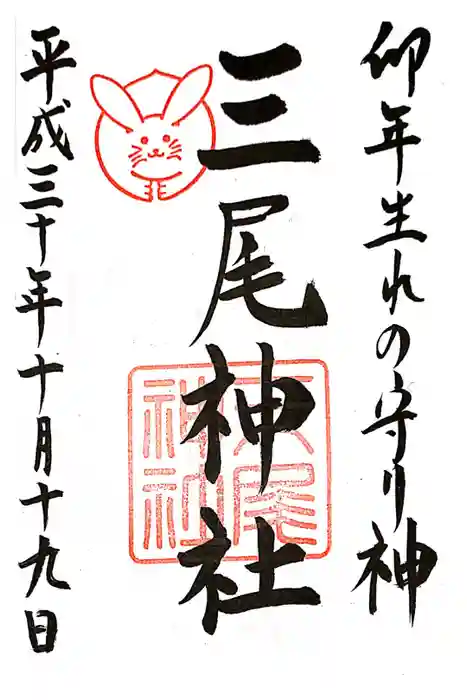 卯年生れの守り神
三尾神社
平成三十年十月十九日